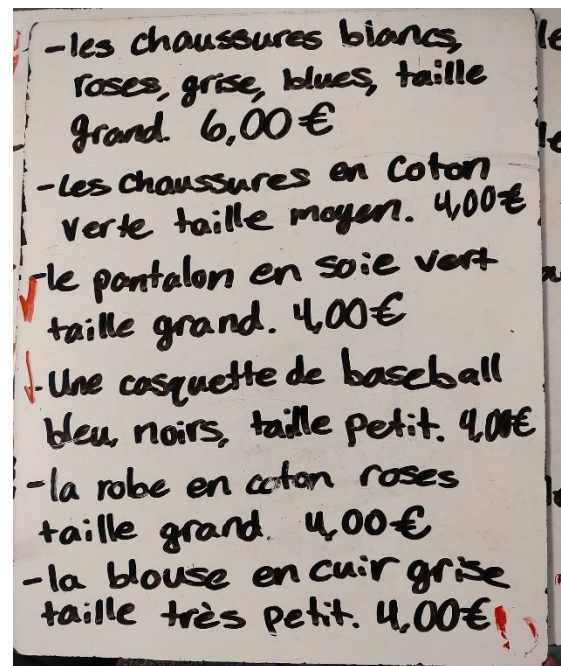 -les chaussures blancs,
roses, grise, blues, taille
grand. 6,00€
-Les chaussures en coton
verte taille moyen. 4,00€
-le pantalon en soie vert
taille grand. 4,00€
-Une casquette de baseball
bleu, noirs, taille petit. 4,00€
-la robe en coton roses
taille grand. 4,00€
-la blouse en cuir grise
taille très petit. 4,00€!